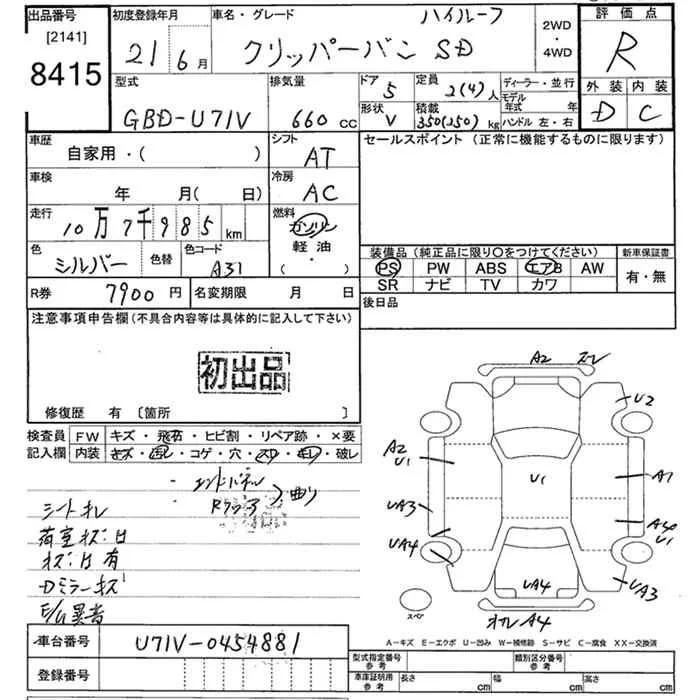 出品番号
[2141]
8415
初度登録年月
21 6月
車名・グレード
ハイルーフ
クリッパーバン SD
2WD
・
4WD
評価点
R
外装 内装
D C
型式
GBD-U71V
排気量
660 cc
ドア 5
形状 V
定員 2(4)人
積載 350(250)kg
ディーラー・並行
モデル年式 年
ハンドル 左・右
車歴
自家用・( )
シフト
AT
車検
年 月( 日)
冷房
AC
走行
10万7千985 km
燃料
ガソリン
軽油
・
( )
色
シルバー
色替
色コード
A31
セールスポイント(正常に機能するものに限ります)
装備品(純正品に限り○をつけてください)
PS PW ABS エアB AW
SR ナビ TV カワ
新車保証書
有・無
R券 7900円
名変期限 月 日
後日品
注意事項申告欄(不具合内容等は具体的に記入して下さい)
初出品
修復歴 有 [箇所 ]
検査員 FW キズ・飛石・ヒビ割・リペア跡・×要
記入欄 内装 キズ・汚レ・コゲ・穴・スレ・キレ・破レ
曲り
荷室キズ凹
キズ凹有
Dミラーキズ
E/G異音
A2
U2
A2
U1
U1
A1
UA3
UA4
U1
UA4
UA3
A4
スペア
A-キズ E-エクボ U-凹み W-補修跡 S-サビ C-腐食 XX-交換済
車台番号
U71V-0454881
登録番号
型式指定番号
参考
類別区分番号
参考
車庫証明用
参考
長さ cm
幅 cm
高さ cm